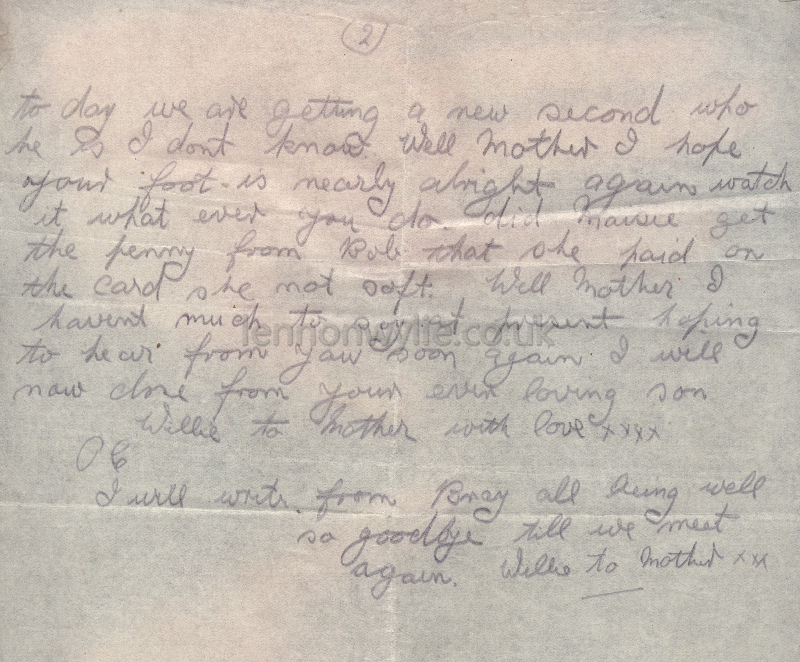 2
to day we are getting a new second who
he is I dont know. Well Mother I hope
your foot is nearly alright again watch
it what ever you do. did Maisie get
the penny from Bob that she paid on
the card she not soft. Well Mother I
havent much to say at present hoping
lennonwylie.co.uk
to hear from yaw soon again I will
now close from your ever loving son
Willie to Mother with love xxxx
I will write from Bray all being well
so goodbye till we meet
again. Willie to Mother xxx